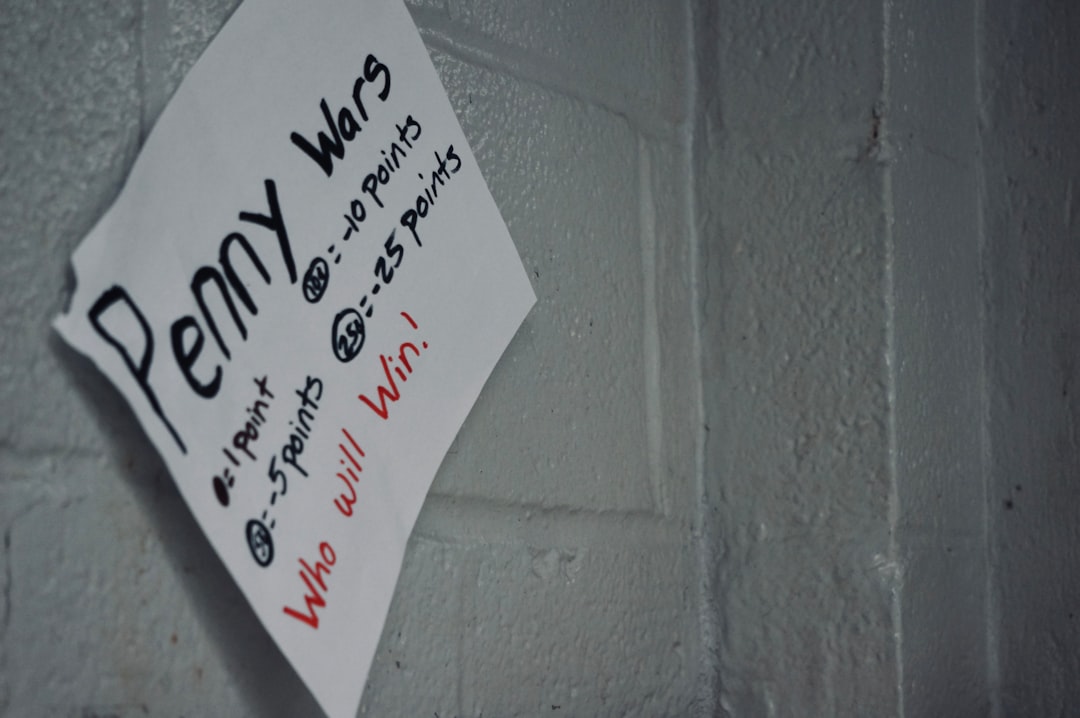 Penny Wars
= 1 point
10¢ = -10 points
5¢ = -5 points
25¢ = -25 points
Who will Win!